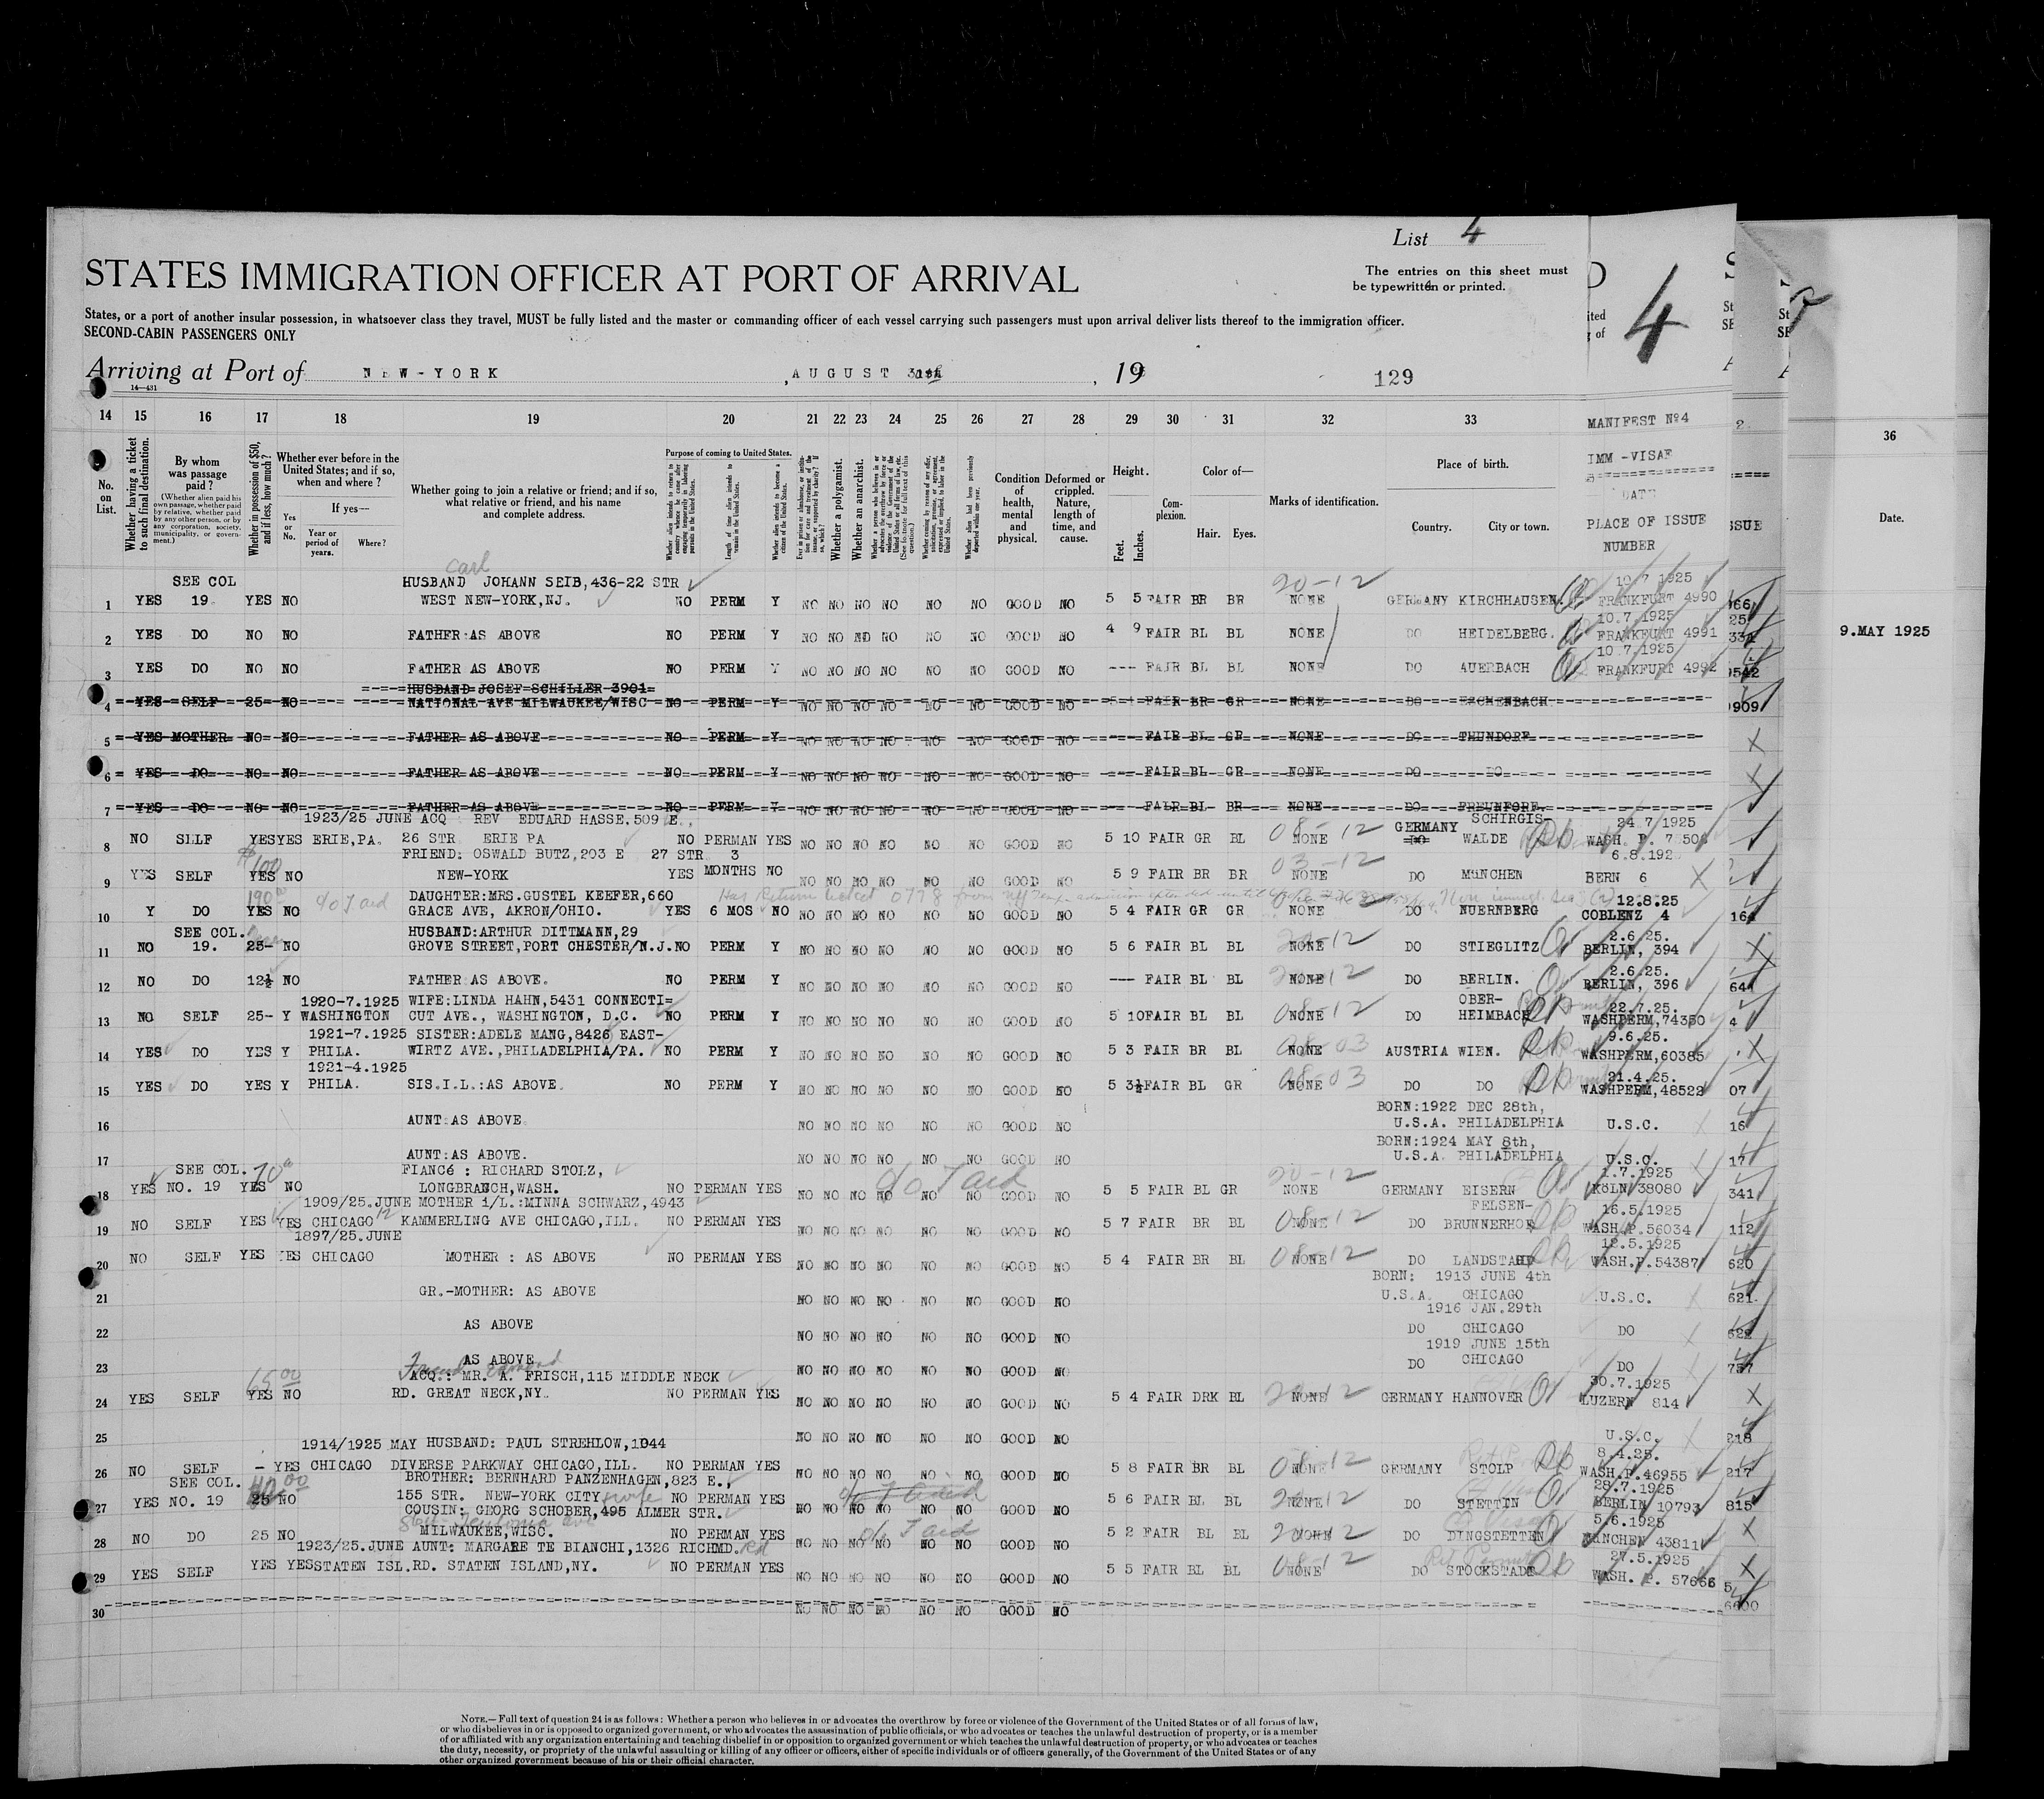 List 4
STATES IMMIGRATION OFFICER AT PORT OF ARRIVAL
The entries on this sheet must
be typewritten or printed.
States, or a port of another insular possession, in whatsoever class they travel, MUST be fully listed and the master or commanding officer of each vessel carrying such passengers must upon arrival deliver lists thereof to the immigration officer.
SECOND-CABIN PASSENGERS ONLY
4
Arriving at Port of NEW-YORK, AUGUST 31st, 19
14—431
129
14 15 16 17 18 19 20 21 22 23 24 25 26 27 28 29 30 31 32 33 MANIFEST No4 36
No. on List.
Whether having a ticket to such final destination.
By whom was passage paid?
(Whether alien paid his own passage, whether paid by relative, whether paid by any other person, or by any corporation, society, municipality, or government.)
Whether in possession of $50, and if less, how much?
Whether ever before in the United States; and if so, when and where?
Yes or No.
If yes—
Year or period of years.
Where?
Whether going to join a relative or friend; and if so, what relative or friend, and his name and complete address.
Purpose of coming to United States.
Whether a polygamist.
Whether an anarchist.
Condition of health, mental and physical.
Deformed or crippled. Nature, length of time, and cause.
Height.
Feet. Inches.
Complexion.
Color of—
Hair. Eyes.
Marks of identification.
Place of birth.
Country. City or town.
IMM -VISAE
DATE
PLACE OF ISSUE
NUMBER
Date.
9.MAY 1925
Carl
SEE COL HUSBAND JOHANN SEIB,436-22 STR 20-12 10 7 1925
1 YES 19. YES NO WEST NEW-YORK,NJ. NO PERM Y NO NO NO NO NO NO GOOD NO 5 5 FAIR BR BR NONE GERMANY KIRCHHAUSEN. FRANKFURT 4990
10.7.1925
2 YES DO NO NO FATHER:AS ABOVE NO PERM Y NO NO NO NO NO NO GOOD NO 4 9 FAIR BL BL NONE DO HEIDELBERG. FRANKFURT 4991
10 7.1925
3 YES DO NO NO FATHER AS ABOVE NO PERM Y NO NO NO NO NO NO GOOD NO --- FAIR BL BL NONE DO AUERBACH FRANKFURT 4992
HUSBAND JOSEF SCHILLER 3901
4 YES SELF 25 NO NATIONAL AVE MILWAUKEE/WISC NO PERM Y NO NO NO NO NO NO GOOD NO FAIR BR GR NONE DO ESCHENBACH
5 YES MOTHER NO NO FATHER AS ABOVE NO PERM Y NO NO NO NO NO NO GOOD NO FAIR BL GR NONE DO THUNDORF
6 YES DO NO NO FATHER AS ABOVE NO PERM Y NO NO NO NO NO NO GOOD NO FAIR BL GR NONE DO DO
7 YES DO NO NO FATHER AS ABOVE NO PERM Y NO NO NO NO NO NO GOOD NO FAIR BL BR NONE DO
1923/25 JUNE ACQ REV EDUARD HASSE,509 E. SCHIRGIS- 24 7 1925
8 NO SELF YES YES ERIE,PA. 26 STR ERIE PA NO PERMAN YES NO NO NO NO NO NO GOOD NO 5 10 FAIR GR BL 08-12 NONE GERMANY WALDE WASH. P.
$100 FRIEND: OSWALD BUTZ,203 E 27 STR 3 03-12 6.8.192
9 YES SELF YES NO NEW-YORK YES MONTHS NO NO NO NO NO NO NO GOOD NO 5 9 FAIR BR BR NONE DO MüNCHEN BERN 6
190 DAUGHTER:MRS.GUSTEL KEEFER,660 Has Return ticket 12.8.25
10 Y DO YES NO GRACE AVE, AKRON/OHIO. YES 6 MOS NO NO NO NO NO NO NO GOOD NO 5 4 FAIR GR GR NONE DO NUERNBERG COBLENZ 4
SEE COL. HUSBAND:ARTHUR DITTMANN,29 2.6.25.
11 NO 19. 25- NO GROVE STREET,PORT CHESTER/N.J. NO PERM Y NO NO NO NO NO NO GOOD NO 5 6 FAIR BL BL NONE 20-12 DO STIEGLITZ BERLIN, 394
2.6.25.
12 NO DO 12½ NO FATHER AS ABOVE. NO PERM Y NO NO NO NO NO NO GOOD NO --- FAIR BL BL NONE 20-12 DO BERLIN. BERLIN, 396
1920-7.1925 WIFE:LINDA HAHN,5431 CONNECTI= OBER- 22.7.25.
13 NO SELF 25- Y WASHINGTON CUT AVE., WASHINGTON, D.C. NO PERM Y NO NO NO NO NO NO GOOD NO 5 10 FAIR BL BL NONE 08-12 DO HEIMBACH WASHPERM,74350
1921-7.1925 SISTER:ADELE MANG,8426 EAST- 9.6.25.
14 YES DO YES Y PHILA. WIRTZ AVE.,PHILADELPHIA/PA. NO PERM Y NO NO NO NO NO NO GOOD NO 5 3 FAIR BR BL NONE 08-03 AUSTRIA WIEN. WASHPERM,60385
1921-4.1925 21.4.25.
15 YES DO YES Y PHILA. SIS.I.L.:AS ABOVE. NO PERM Y NO NO NO NO NO NO GOOD NO 5 3½ FAIR BL GR NONE 08-03 DO DO WASHPERM,48522
BORN:1922 DEC 28th,
16 AUNT:AS ABOVE. NO NO NO NO NO NO GOOD NO U.S.A. PHILADELPHIA U.S.C.
BORN:1924 MAY 8th,
17 AUNT:AS ABOVE. NO NO NO NO NO NO GOOD NO U.S.A. PHILADELPHIA U.S.C.
SEE COL. 70 FIANCé : RICHARD STOLZ, 20-12 1.7.1925
18 YES NO. 19 YES NO LONGBRANCH,WASH. NO PERMAN YES NO NO NO NO NO NO GOOD NO 5 5 FAIR BL GR NONE GERMANY EISERN KöLN 38080
1909/25.JUNE MOTHER i/L.:MINNA SCHWARZ,4943 FELSEN- 16.5.1925
19 NO SELF YES YES CHICAGO KAMMERLING AVE CHICAGO,ILL. NO PERMAN YES NO NO NO NO NO NO GOOD NO 5 7 FAIR BR BL NONE 08-12 DO BRUNNERHOF WASH.P.56034
1897/25.JUNE 12.5.1925
20 NO SELF YES YES CHICAGO MOTHER : AS ABOVE NO PERMAN YES NO NO NO NO NO NO GOOD NO 5 4 FAIR BR BL NONE 08-12 DO LANDSTAHP WASH.P.54387
BORN: 1913 JUNE 4th
21 GR.-MOTHER: AS ABOVE NO NO NO NO NO NO GOOD NO U.S.A. CHICAGO U.S.C.
1916 JAN.29th
22 AS ABOVE NO NO NO NO NO NO GOOD NO DO CHICAGO DO
1919 JUNE 15th
23 AS ABOVE NO NO NO NO NO NO GOOD NO DO CHICAGO DO
Friend Edmond
ACQ.: MR. A. FRISCH,115 MIDDLE NECK 30.7.1925
24 YES SELF YES NO RD. GREAT NECK,NY. NO PERMAN YES NO NO NO NO NO NO GOOD NO 5 4 FAIR DRK BL NONE 20-12 GERMANY HANNOVER LUZERN 814
25 NO NO NO NO NO NO GOOD NO U.S.C.
1914/1925 MAY HUSBAND: PAUL STREHLOW,1044 8.4.25.
26 NO SELF - YES CHICAGO DIVERSE PARKWAY CHICAGO,ILL. NO PERMAN YES NO NO NO NO NO NO GOOD NO 5 8 FAIR BR BL NONE 08-12 GERMANY STOLP WASH.P.46955
SEE COL. BROTHER: BERNHARD PANZENHAGEN,823 E., 28.7.1925
27 YES NO. 19 25 NO 155 STR. NEW-YORK CITY. wife NO PERMAN YES NO NO NO NO NO NO GOOD NO 5 6 FAIR BL BL NONE 20-12 DO STETTIN BERLIN 10793
COUSIN: GEORG SCHOBER,495 ALMER STR. 5.6.1925
28 NO DO 25 NO MILWAUKEE,WISC. NO PERMAN YES NO NO NO NO NO NO GOOD NO 5 2 FAIR BL BL NONE 20-12 DO DINGSTETTEN MüNCHEN 43811
1923/25.JUNE AUNT: MARGARE TE BIANCHI,1326 RICHMD. Rd 27.5.1925
29 YES SELF YES YES STATEN ISL. RD. STATEN ISLAND,NY. NO PERMAN YES NO NO NO NO NO NO GOOD NO 5 5 FAIR BL BL NONE 08-12 DO STOCKSTADT WASH. P. 57666
30 NO NO NO NO NO NO GOOD NO
NOTE.—Full text of question 24 is as follows: Whether a person who believes in or advocates the overthrow by force or violence of the Government of the United States or of all forms of law,
or who disbelieves in or is opposed to organized government, or who advocates the assassination of public officials, or who advocates or teaches the unlawful destruction of property, or is a member
of or affiliated with any organization entertaining and teaching disbelief in or opposition to organized government or which teaches the unlawful destruction of property, or who advocates or teaches
the duty, necessity, or propriety of the unlawful assaulting or killing of any officer or officers, either of specific individuals or of officers generally, of the Government of the United States or of any
other organized government because of his or their official character.